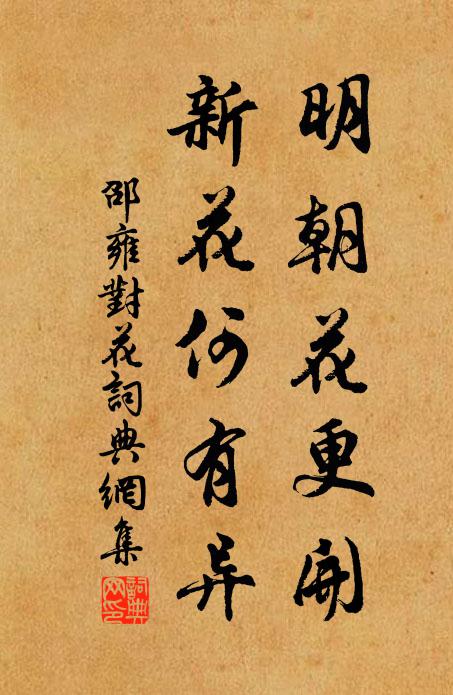 明朝花更開
新花何有异
邵雍對花詞典網集
詞典網印